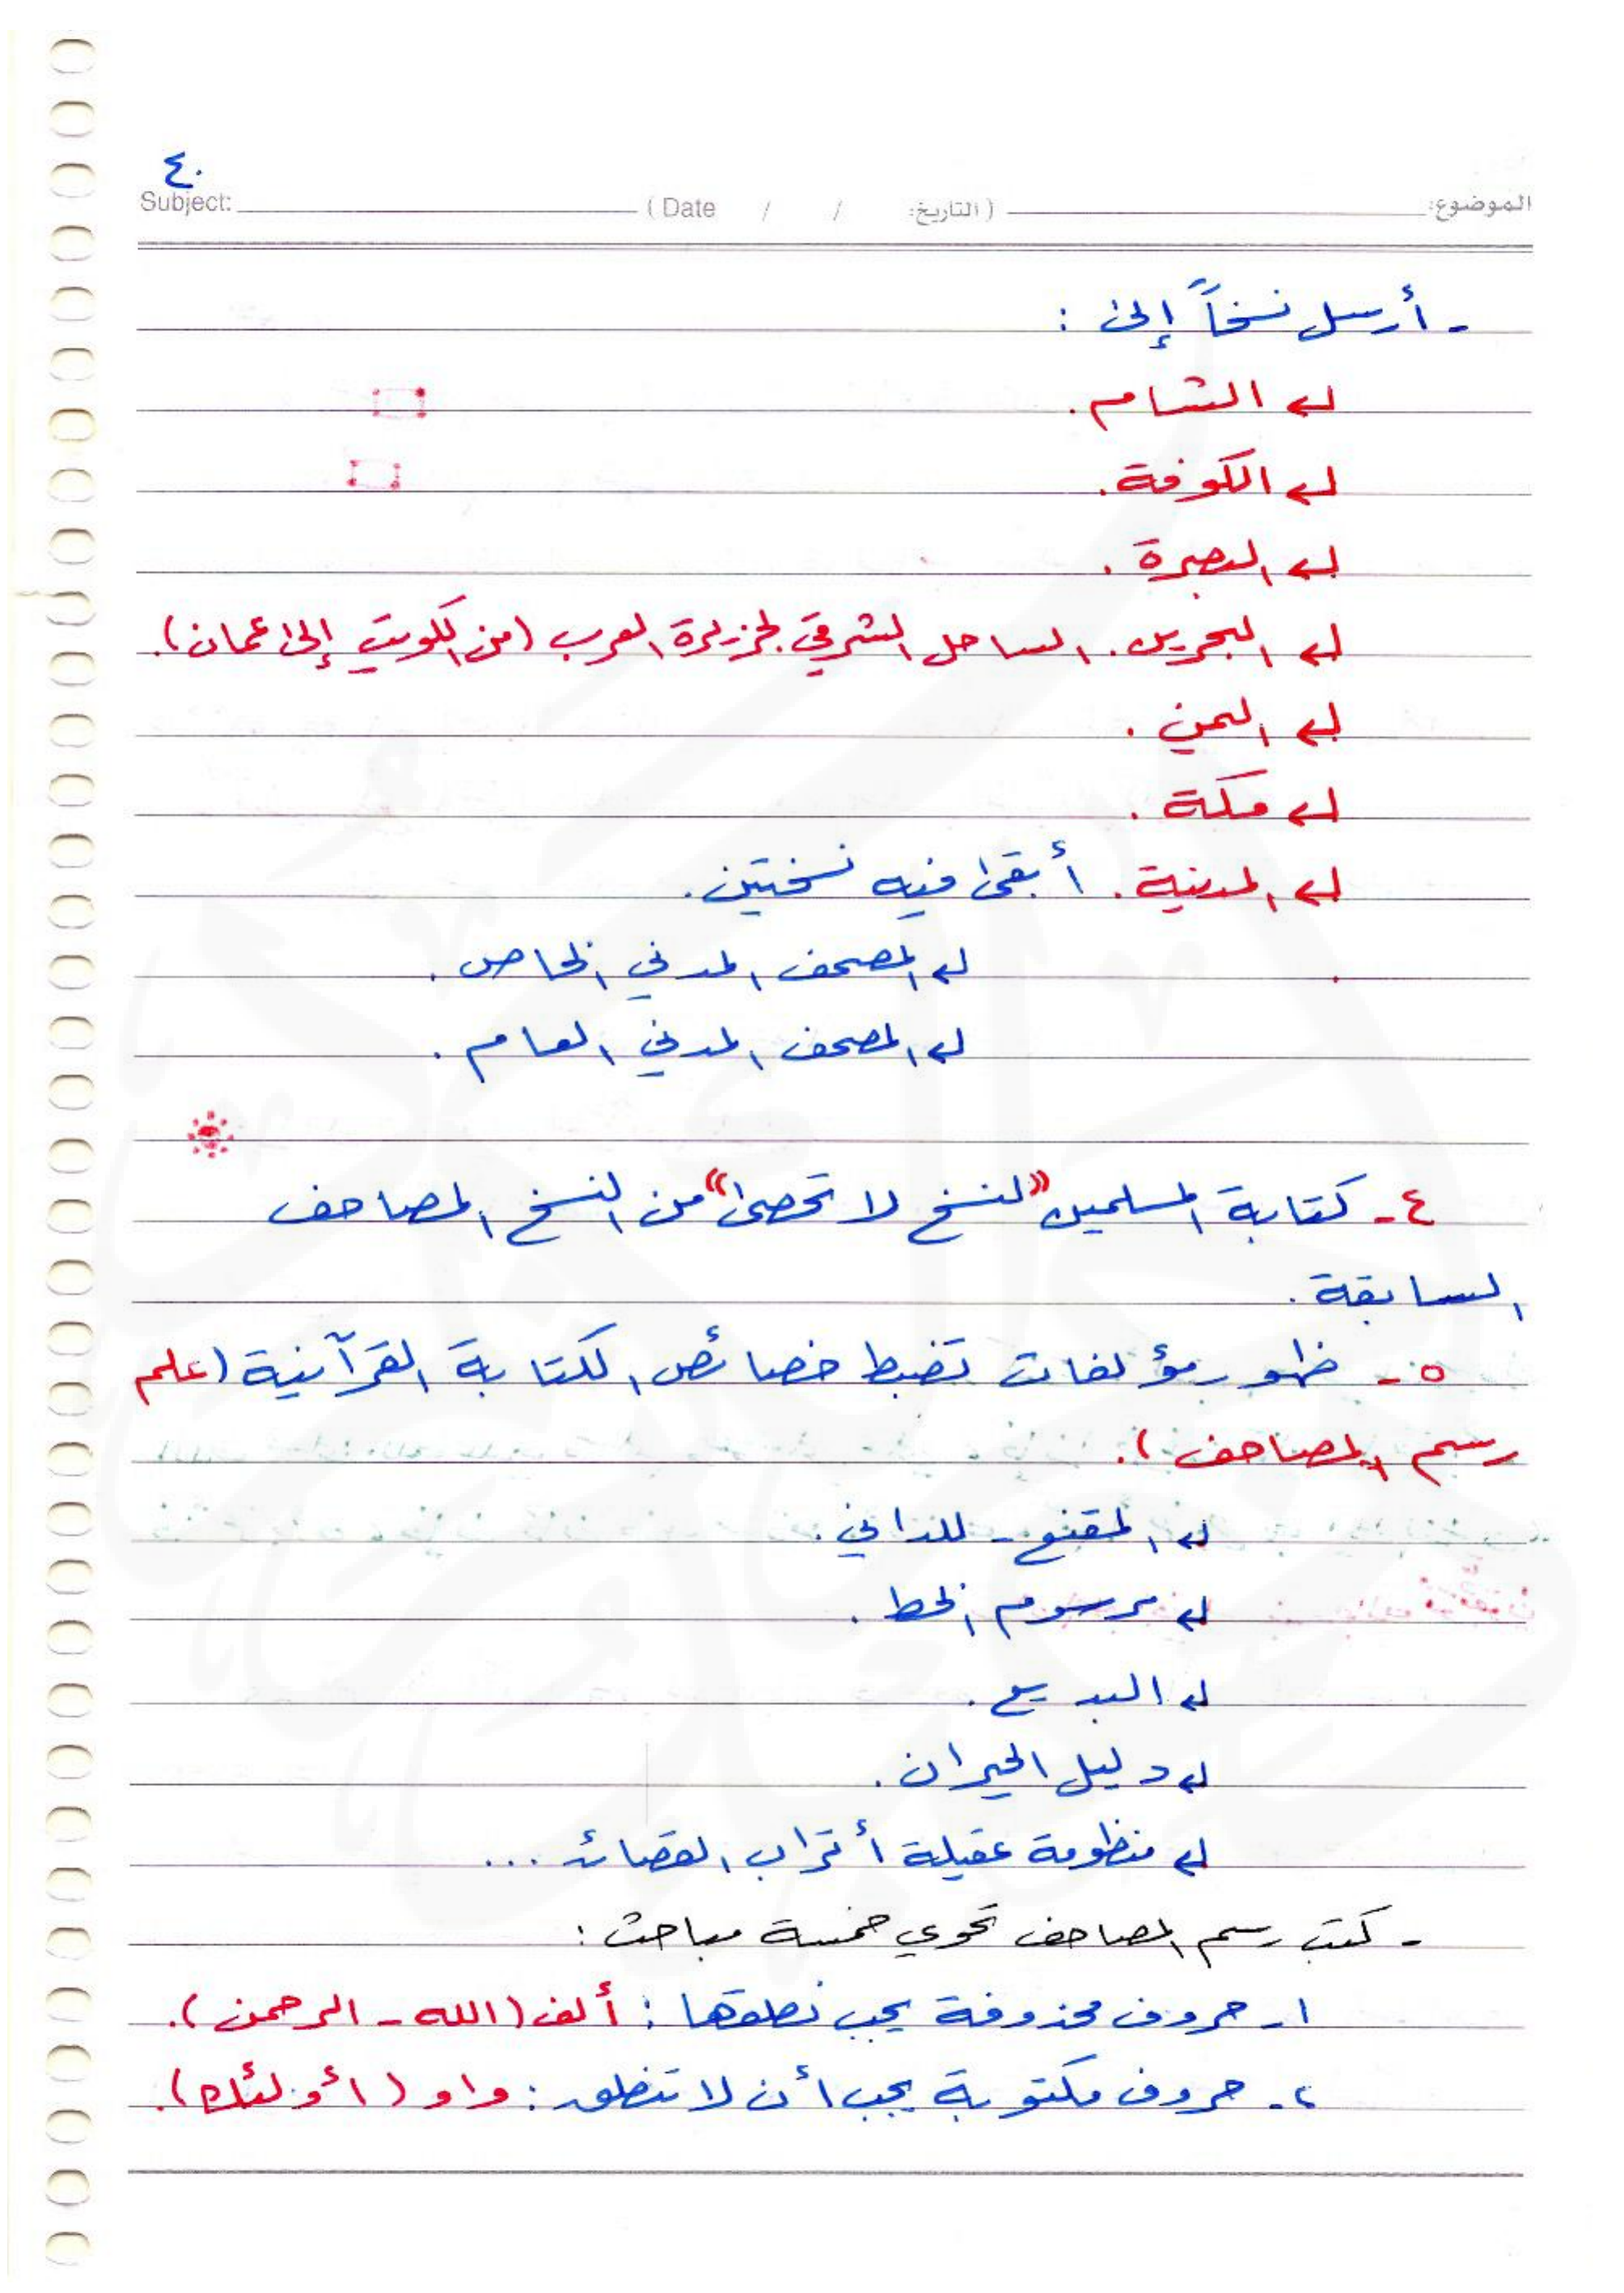 ٤٠
الموضوع: (التاريخ: / / Date ) Subject:
- أرسل نسخاً إلى :
↵ الشام .
↵ الكوفة .
↵ البصرة .
↵ البحرين . الساحل الشرقي لجزيرة العرب (من الكويت إلى عمان).
↵ اليمن .
↵ مكة .
↵ المدينة . أبقى فيه نسختين .
↵ المصحف المدني الخاص .
↵ المصحف المدني العام .
٤- كتابة المسلمين "لنسخ لا تحصى" من النسخ المصاحف
السابقة .
٥- ظهور مؤلفات تضبط خصائص الكتابة القرآنية (علم
رسم المصاحف ).
↵ المقنع - للداني .
↵ مرسوم الخط .
↵ البديع .
↵ دليل الحيران .
↵ منظومة عقيلة أتراب القصائد ...
- كتب رسم المصاحف تحوي خمسة مباحث :
١- حروف محذوفة يجب نطقها : ألف (الله - الرحمن ).
٢- حروف مكتوبة يجب أن لا تنطق : واو ( أولئك ).